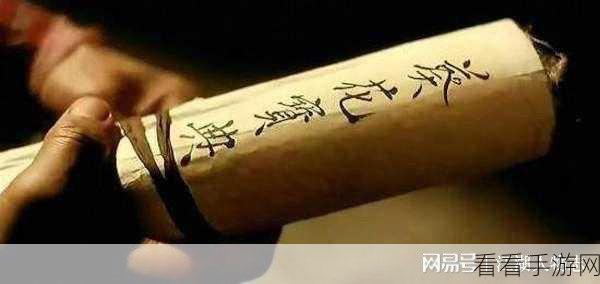 葵花寶典
网易号
看看手游网